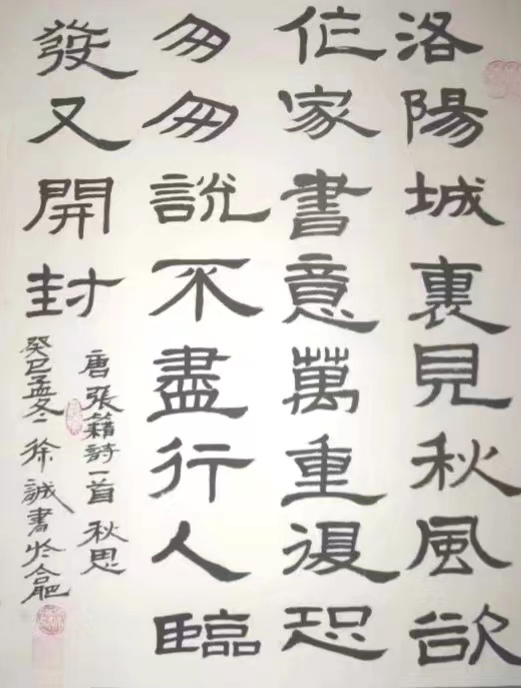 洛陽城裏見秋風欲
作家書意萬重復恐
匆匆說不盡行人臨
發又開封
唐張籍詩一首 秋思
癸巳孟冬 徐誠書於合肥